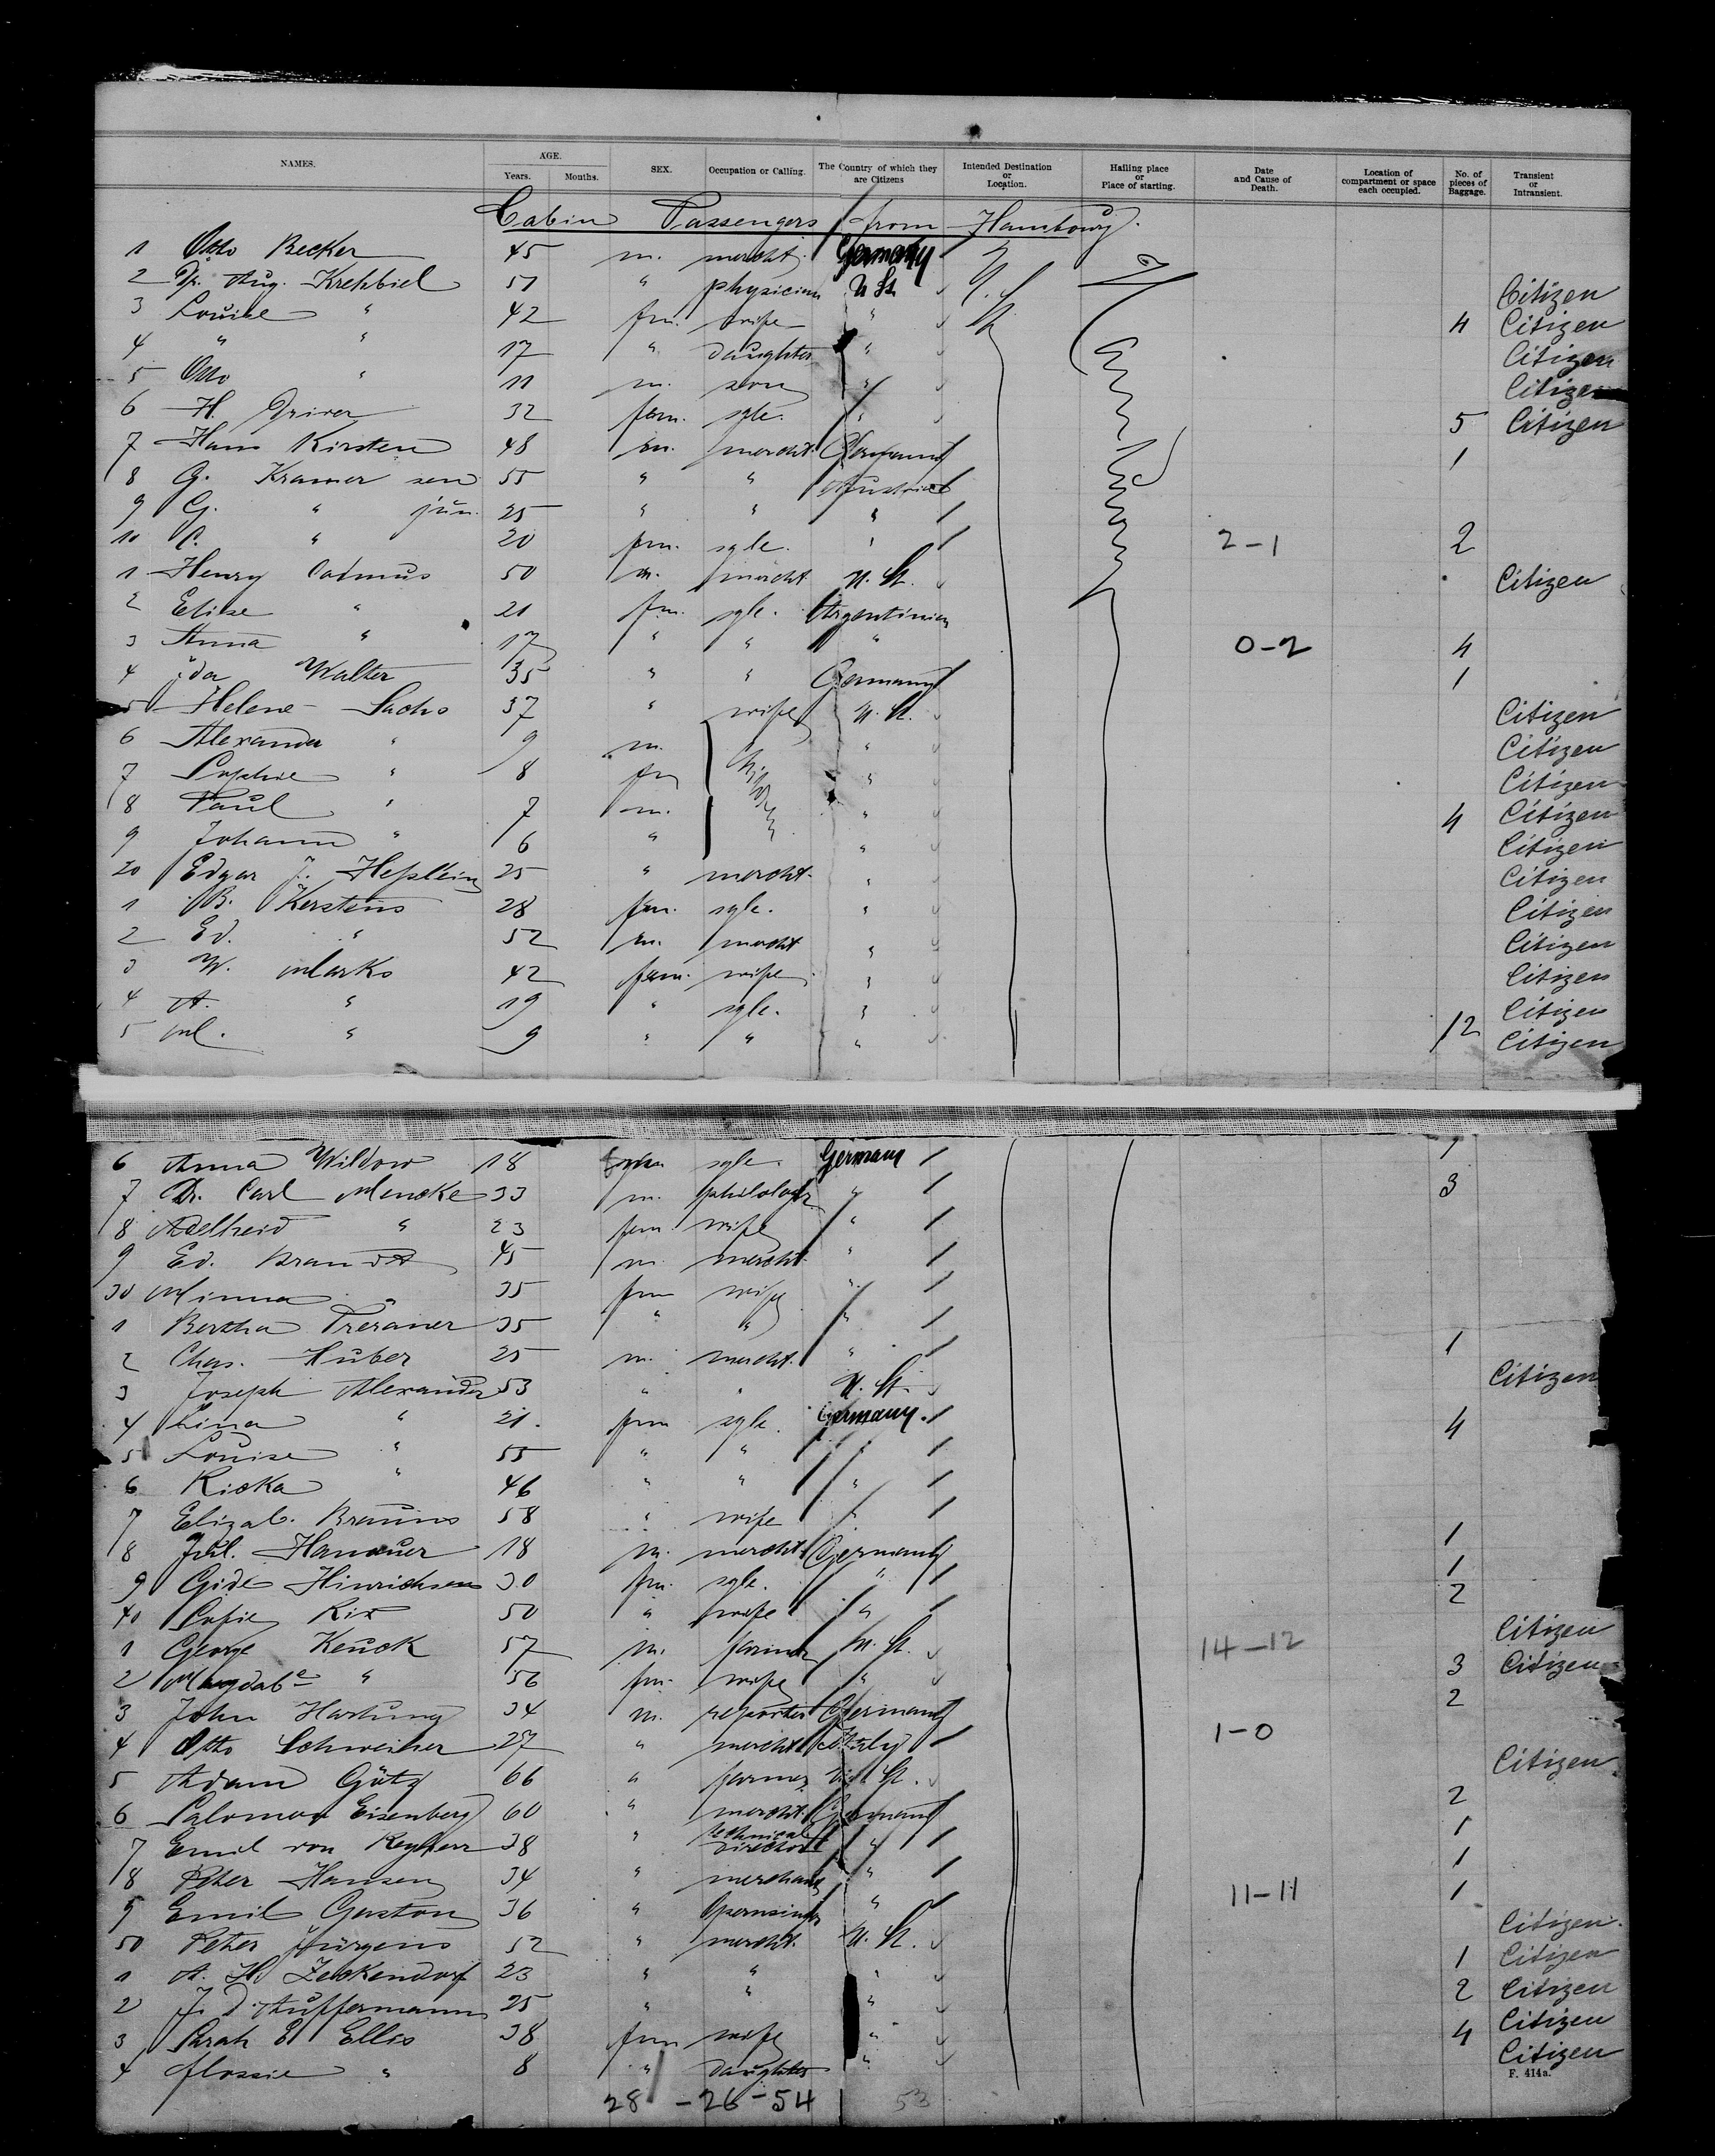 NAMES. AGE. Years. Months. SEX. Occupation or Calling. The Country of which they are Citizens Intended Destination or Location. Hailing place or Place of starting. Date and Cause of Death. Location of compartment or space each occupied. No. of pieces of Baggage. Transient or Intransient.
Cabin Passengers from Hamburg.
1 Otto Becker 45 m. mercht. Germany
2 Dr. Aug. Krehbiel 51 " physician U. St. Citizen
3 Louise " 42 fm. wife " 4 Citizen
4 " " 17 " daughter " Citizen
5 Otto " 11 m. son " Citizen
6 H. Driver 32 fem. sgle. " 5 Citizen
7 Hans Kirsten 48 m. mercht. Germany 1
8 G. Kramer sen 55 " " Austria
9 G. " jun. 25 " " "
10 C. " 20 fm. sgle. " 2-1 2
1 Henry Cadmus 50 m. mercht U. St. Citizen
2 Elise " 21 fm. sgle. Argentinien
3 Anna " 17 " " " 0-2 4
4 Ida Walter 35 " " Germany 1
5 Helene Sachs 37 " wife U. St. Citizen
6 Alexander " 9 m. children " Citizen
7 Sophie " 8 fm " Citizen
8 Paul " 7 m. " 4 Citizen
9 Johann " 6 " " Citizen
20 Edgar J. Heßlein 25 " mercht. " Citizen
1 B. Kerstens 28 fem. sgle. " Citizen
2 Ed. " 52 m. mercht " Citizen
3 W. Marks 42 fem. wife " Citizen
4 A. " 19 " sgle. " Citizen
5 M. " 9 " " " 12 Citizen
6 Anna Wildow 18 fem sgle. Germany 1
7 Dr. Carl Mencke 33 m. philologe " 3
8 Adelheid " 23 fem. wife "
9 Ed. Brandt 45 m. mercht. "
30 Minna " 35 fem wife "
1 Bertha 35 " " "
2 Chas. Huber 25 m. mercht. " 1
3 Joseph Alexander 53 " " U. St. Citizen
4 Lina " 21. fem sgle. Germany. 4
5 Louise " 55 " " "
6 Ricka " 46 " " "
7 Elizab. Brauns 58 " wife " 1
8 Jul. Hanauer 18 m. mercht. Germany 1
9 Hinrichsen 30 fm. sgle. " 2
40 Sofie Kix 50 " wife "
1 George Keuck 57 m. farmer U. St. 14-12 Citizen
2 " 56 fm. wife " 3 Citizen
3 John Hartung 34 m. reporter Germany 2
4 Otto Schweizer 27 " mercht Italy 1-0
5 Adam Götz 66 " farmer U. St. Citizen
6 Salomon Eisenberg 60 " mercht. Germany 2
7 Emil von 38 " technical director " 1
8 Peter Hansen 34 " merchant " 1
9 Emil Gaston 36 " Opernsinger " 11-11 1
50 Peter Jürgens 52 " mercht. U. St. Citizen.
1 A. H. Zeckendorf 23 " " " 1 Citizen
2 J. D. Auffermann 25 " " " 2 Citizen
3 Sarah E. Ellis 38 fem wife " 4 Citizen
4 Flossie " 8 " daughter " Citizen
F. 414a.
28 - 26 - 54 53